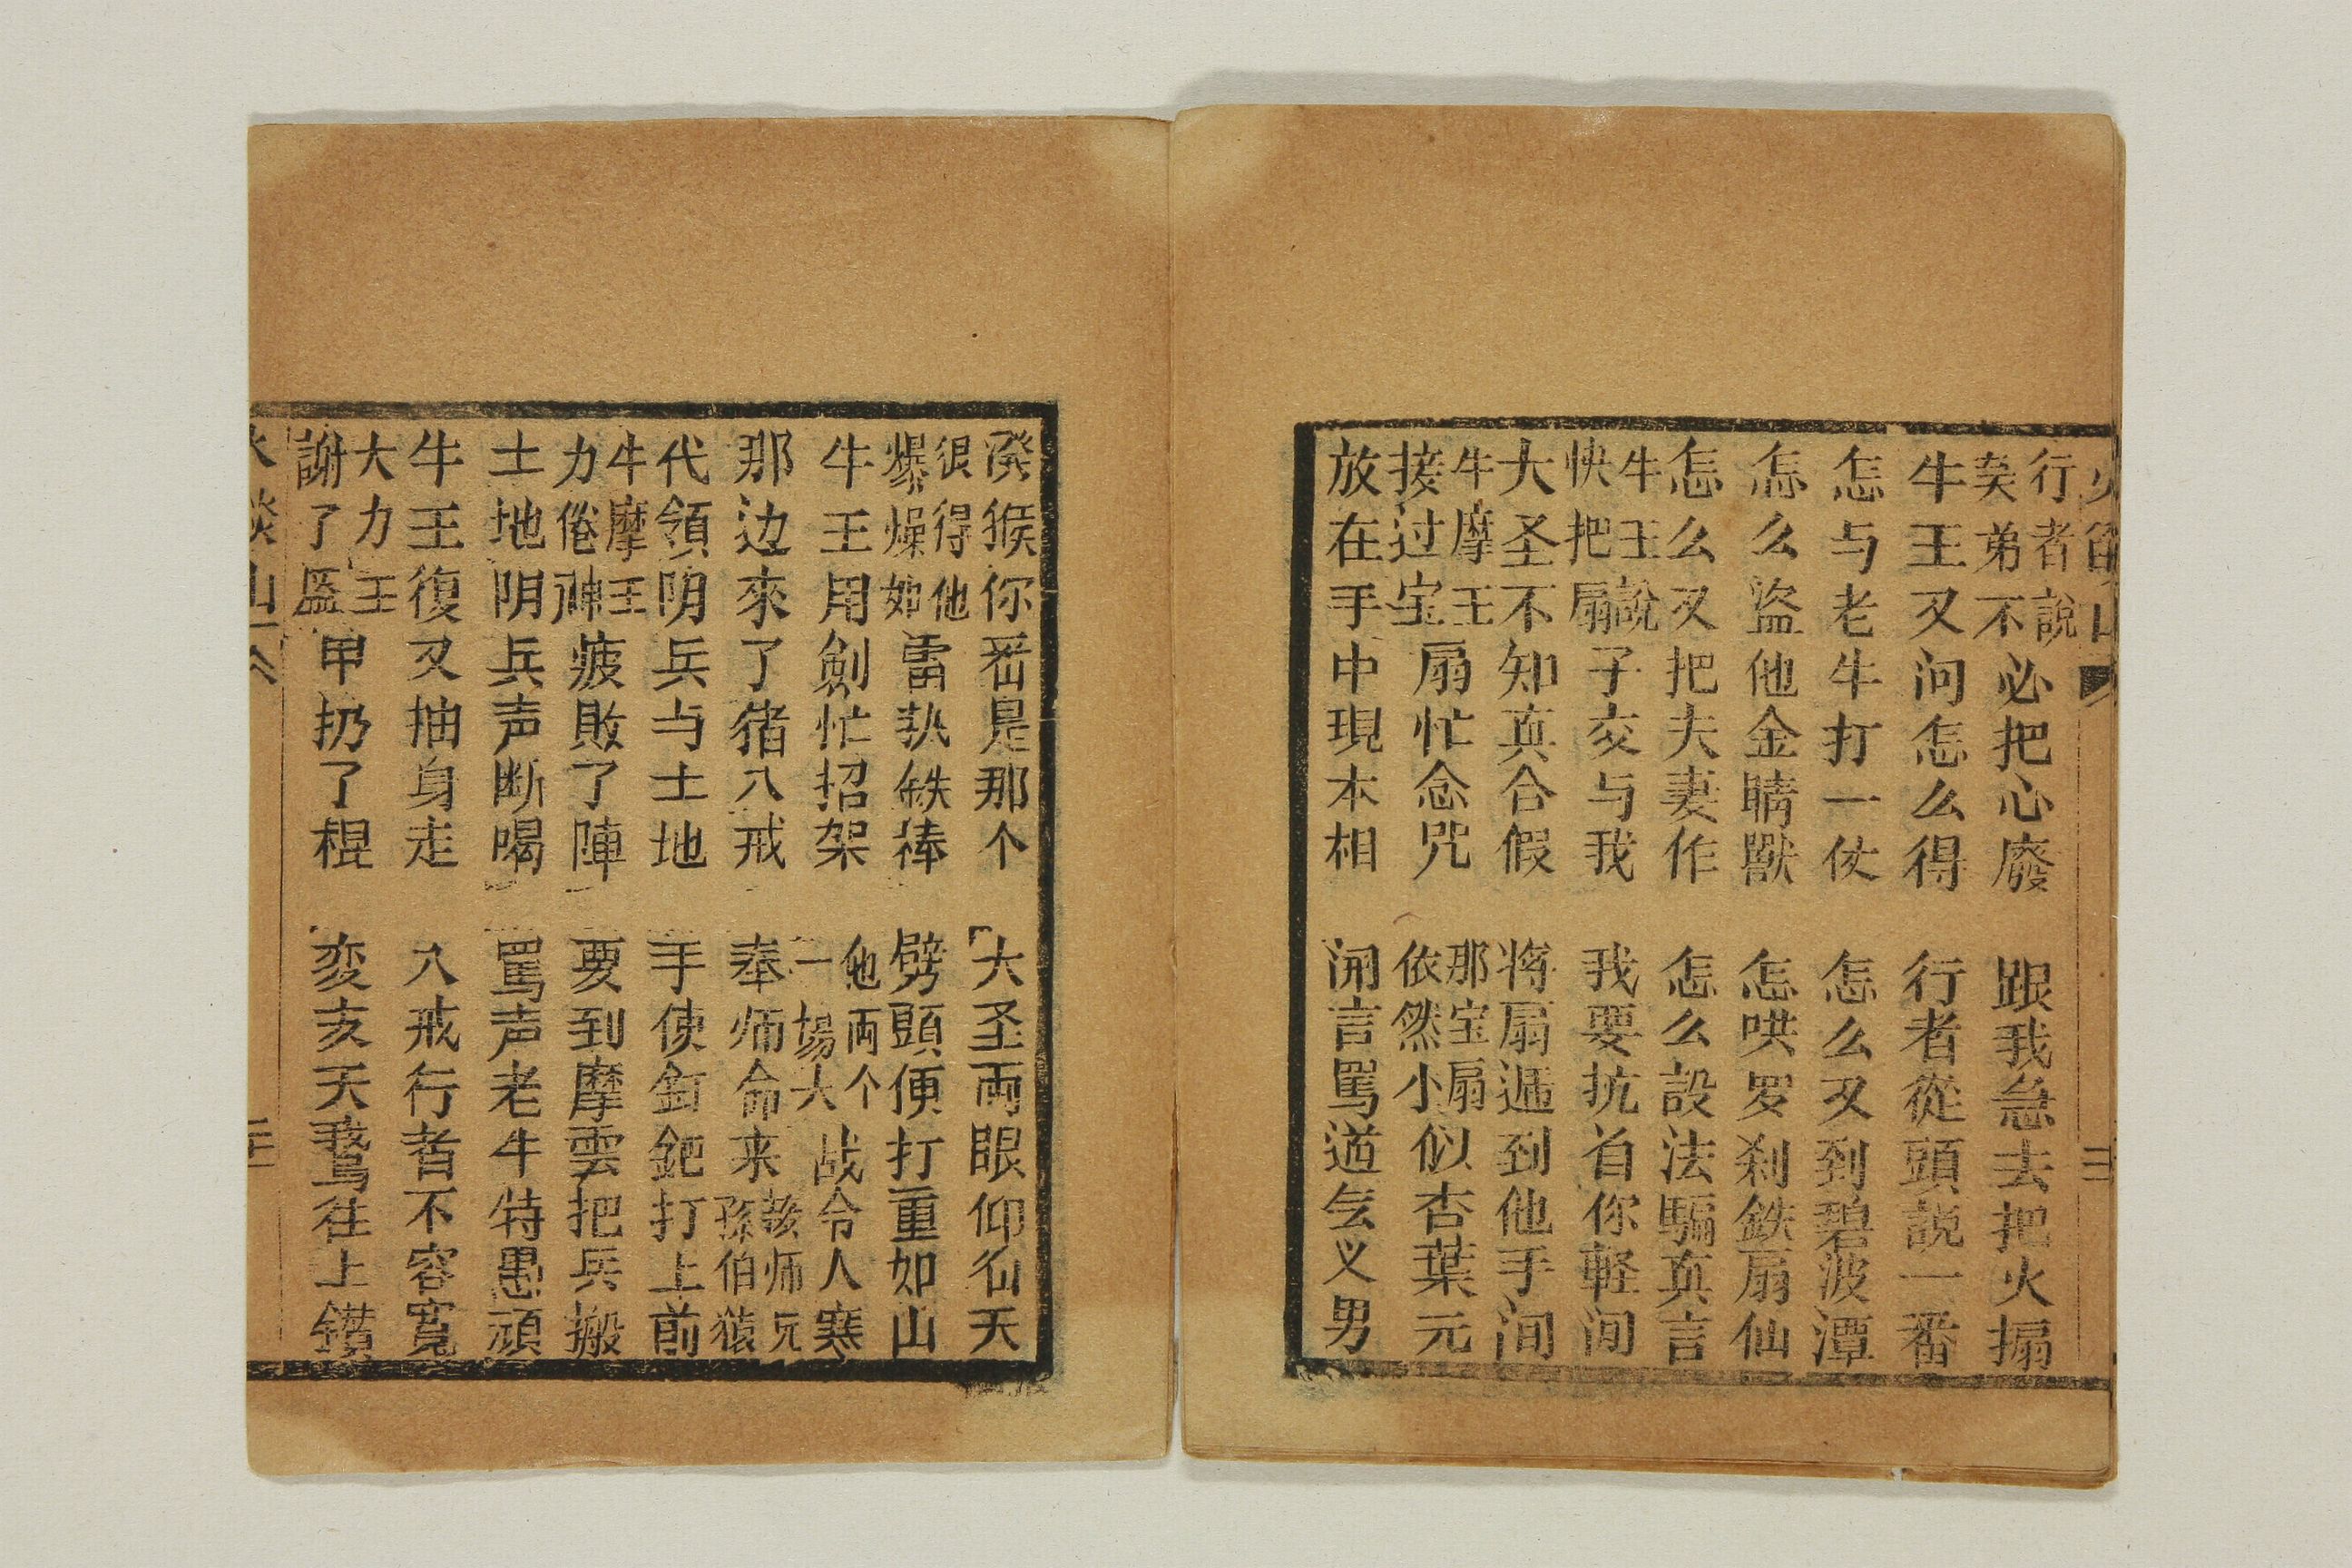 火焰山
行者説矣弟不必把心廢 跟我急去把火搧
牛王又问怎么得 行者從頭説一番
怎与老牛打一仗 怎么又到碧波潭
怎么盜他金睛獸 怎哄罗刹鉄扇仙
怎么又把夫妻作 怎么設法騙真言
牛王説快把扇子交与我 我要抗首你軽间
大圣不知真合假 将扇逓到他手间
牛摩王接过宝扇忙念咒 那宝扇依然小似杏葉元
放在手中現本相 闹言罵道乞义男
潑猴你看是那个 大圣両眼仰仙天
很得他爆燥如雷执鉄棒 劈頭便打重如山
牛王用劍忙招架 他両个一場大战令人寒
那边來了猪八戒 奉师命来該师兄孫伯猿
代領阴兵与土地 手使釘鈀打上前
牛摩王力倦神疲敗了陣 要到摩雲把兵搬
土地阴兵声断喝 罵声老牛特愚頑
牛王復又抽身走 八戒行者不容寬
大力王謝了盔甲扔了棍 变支天鵞往上鑽
火焰山